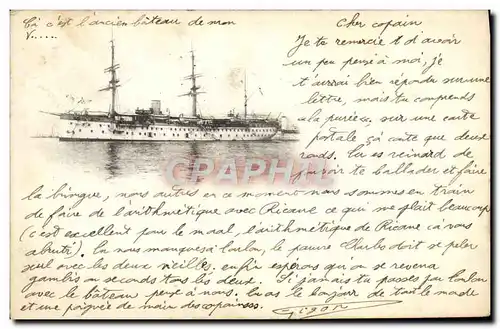 Çà c'est l'ancien bâteau de mon
V.....
Cher copain
Je te remercie t d'avoir
un peu pensé à moi, je
t'aurai bien répondu sur une
lettre, mais tu comprends
à la purée, sur une carte
portale çà coûte que deux
ronds. tu es veinard de
pouvoir te ballader et faire
la bingue, nous autres en ce moment nous sommes en train
de faire de l'arithmétique avec Ricane ce qui me plait beaucoup
(c'est excellent pour le moral, l'arithmétique de Ricane çà vous
abruti). tu nous manques à Toulon, le pauvre Charles doit se peler
seul avec les deux vieilles. enfin espérons qu on se reverra
gambis ou seconds tous les deux. Si jamais tu passes par Toulon
avec le bâteau pense à nous. tu as le bonjour de tout le monde
et une poignée de main des copains.
CPARAMA